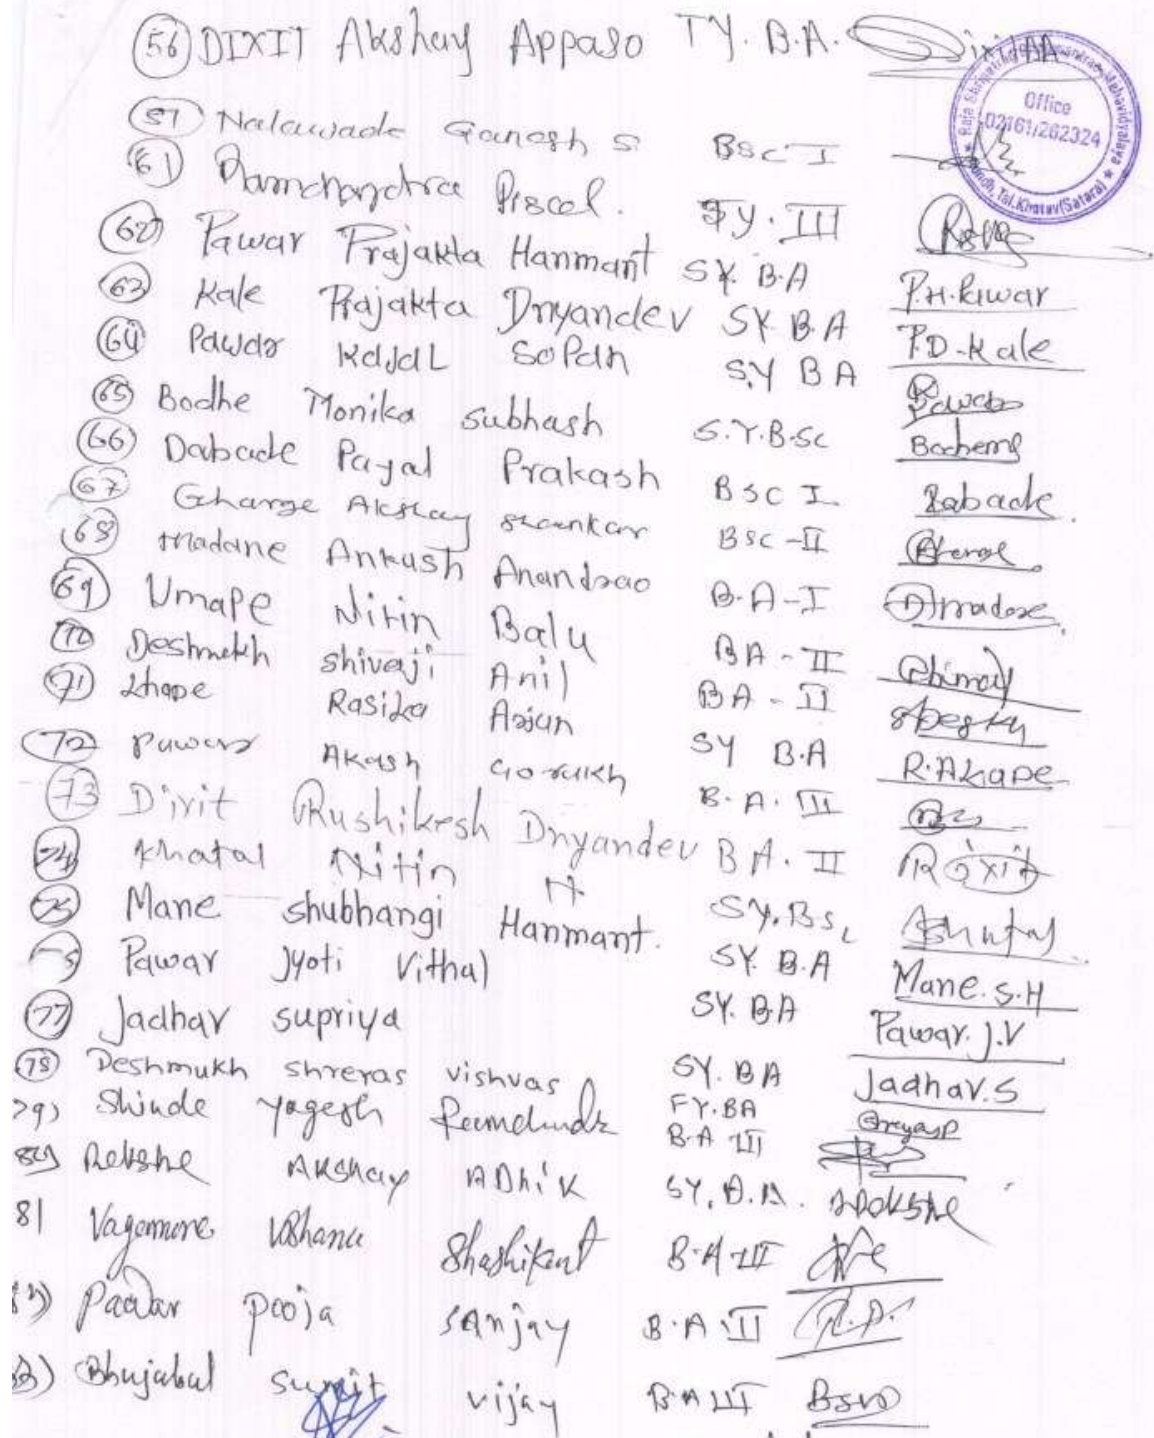 56 DIXIT Akshay Appaso TY. B.A. Dixit AA
Raja Shripatrao Mahavidyalaya Office 02161/262324 Aundh, Tal.Khatav(Satara)
57 Nalawade Ganesh S. BSc I
61 Ramchandra Piscel. TY. III
62 Pawar Prajakta Hanmant SY. B.A P.H.Pawar
63 Kale Prajakta Dnyandev SY B.A P.D-Kale
64 Pawar KaJaL SoPan S.Y B A Pawar
65 Bodhe Monika Subhash S.Y.B.Sc Bodhems
66 Dabade Payal Prakash BSC I Dabade
67 Gharge Akshay Shankar BSC-II
68 Madane Ankush Anandrao B.A-I Amadane
69 Umape Nitin Balu BA-II
70 Deshmukh Shivaji Anil BA-II
71 Khape Rasika Arjun SY B.A R.AKhape
72 Pawar Akash Gorakh B.A. III
73 Dixit Rushikesh Dnyandev B A. II R Dixit
74 Khatal Nitin H. SY.BSc
75 Mane shubhangi Hanmant. SY. B.A Mane.S.H
Pawar Jyoti Vithal SY.BA Pawar.J.V
77 Jadhav supriya SY. BA Jadhav.S
78 Deshmukh shreyas vishvas FY.BA Shreyas
79) Shinde Yogesh B.A III
80) Rokshe Akshay ADhik SY.B.A. Rokshe
81 Vagamore Shashikant B.A III
Pawar pooja sanjay B.A.II
Bhujabal Sumit vijay B.A III